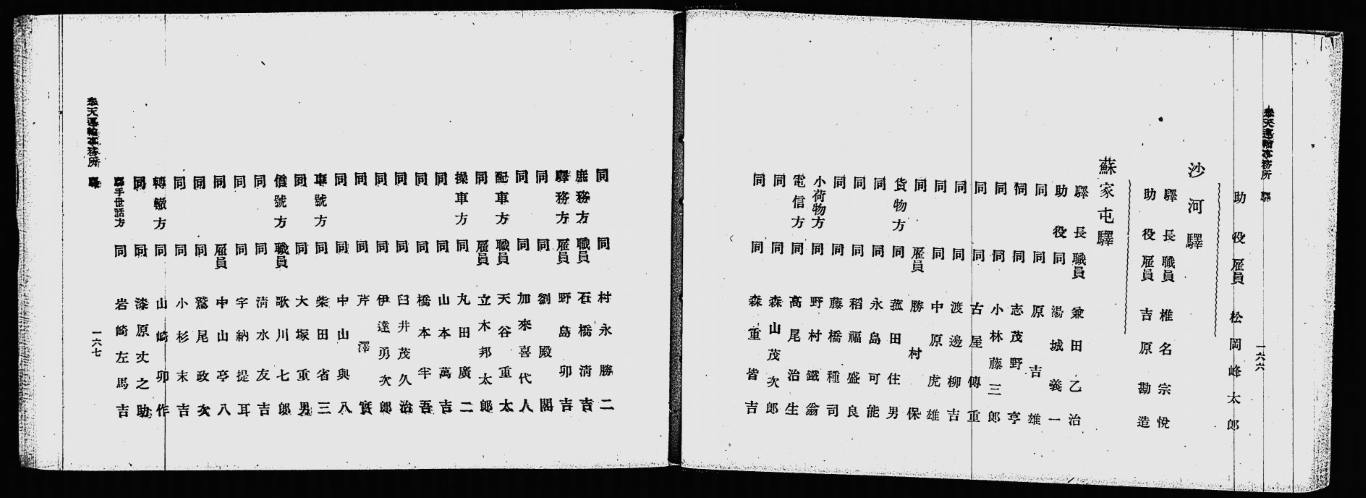 奉天運輸事務所 驛
一六六
助役 雇員 松岡峰太郎
沙河驛
驛長 職員 椎名宗悅
助役 雇員 吉原勘造
蘇家屯驛
驛長 職員 兼田乙治
助役 同 湯城義一
同 同 原吉雄
同 同 志茂野亨
同 同 小林藤三郎
同 同 古屋傳重
同 同 渡邊柳吉
同 同 中原虎雄
同 雇員 勝村保
貨物方 同 菰田住男
同 同 永島可能
同 同 稻福盛良
同 同 藤橋種司
小荷物方 同 野村鐵翁
電信方 同 高尾治生
同 同 森山茂次郎
同 同 森重皆吉
同 同 村永勝二
庶務方 職員 石橋清吉
驛務方 雇員 野島卯吉
同 同 劉殿閣
同 同 加來喜代人
配車方 職員 天谷重太
同 雇員 立木邦太郎
操車方 同 丸田廣二
同 同 山本萬吉
同 同 橋本半吾
同 同 臼井茂久治
同 同 伊達勇次郎
同 同 芹澤實
同 同 中山與八
車號方 同 柴田省三
同 同 大塚重男
信號方 職員 歌川七郎
同 同 清水友吉
同 同 宇納提耳
同 雇員 中山亭八
同 同 鷲尾政次
同 同 小杉末吉
轉轍方 同 山崎卯作
同 同 漆原丈之助
驛手世話方 同 岩崎左馬吉
奉天運輸事務所 驛
一六七